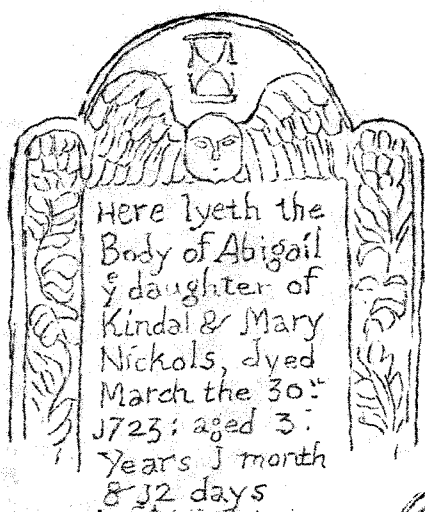 Here lyeth the
Body of Abigail
yᵉ daughter of
Kindal & Mary
Nickols, dyed
March the 30ᵗʰ
1723: aged 3:
Years 1 month
& 12 days